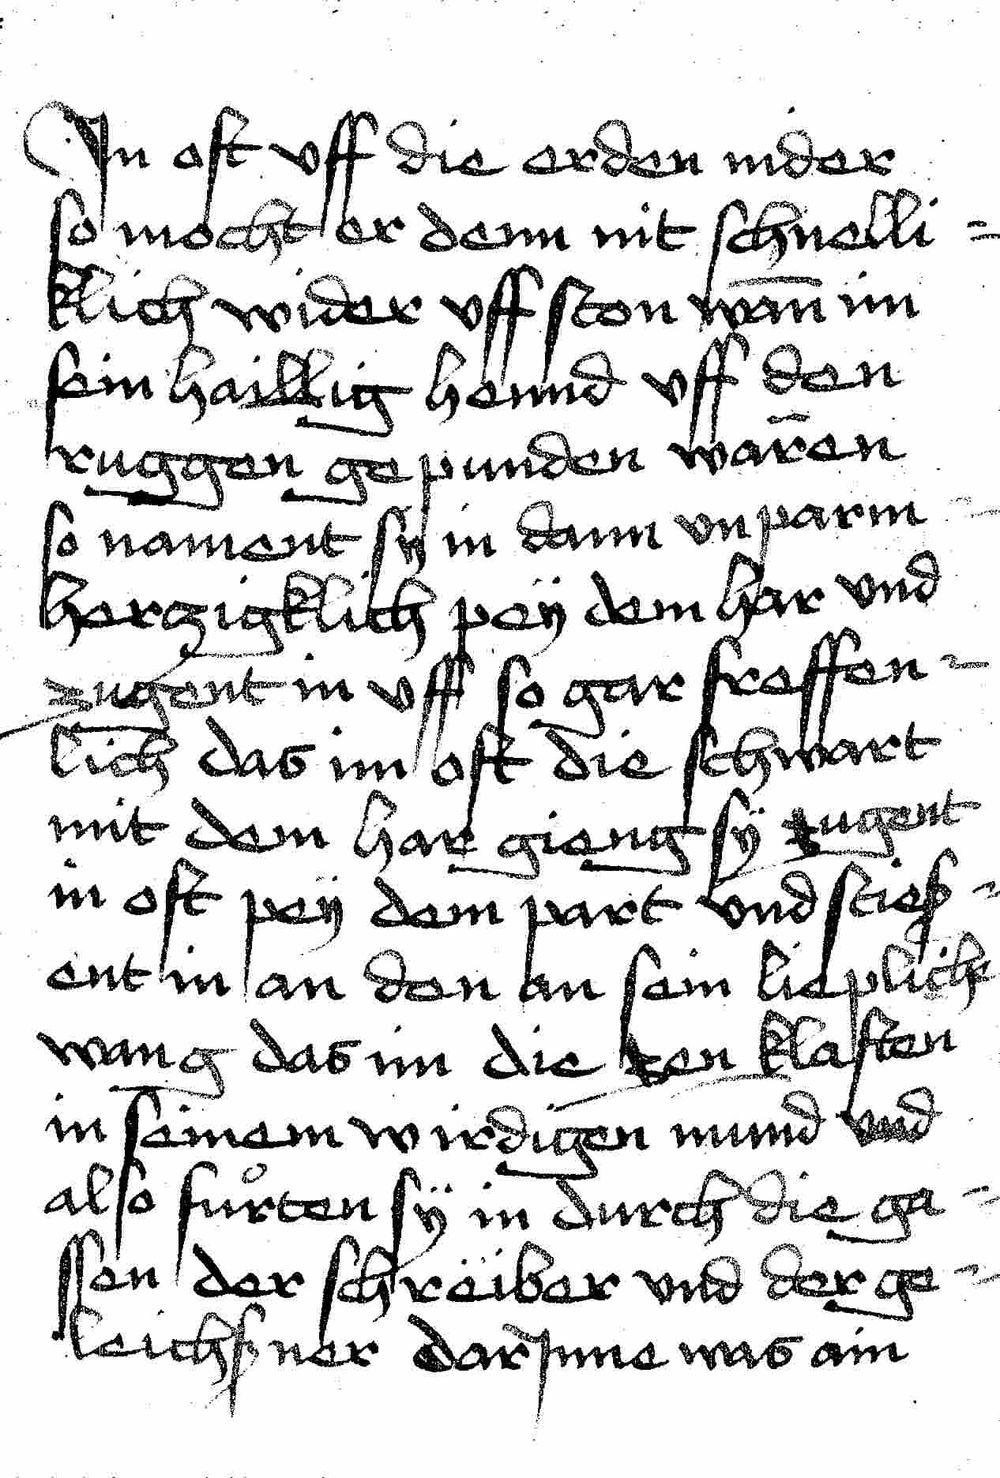 In oft vff die erden nider
so mocht er denn nit schnelli=
klich wider vff ston wan̄ im
sein haillig hennd vff den
ruggen gepunden warēn
so nament sÿ in dann vnparm=
herczigklich peÿ dem har vnd
zugent in vff so gar freffen=
lich das im oft die schwart
mit dem har gieng sÿ zugent
in oft peÿ dem part vnd stieß=
ent in an den an sein lieplich
wang das im die zen klaften
in seinem wirdigen mund vnd
also fůrten sÿ in durch die ga=
ssen der schreiber vnd der ge=
leichßner darJnne was ain